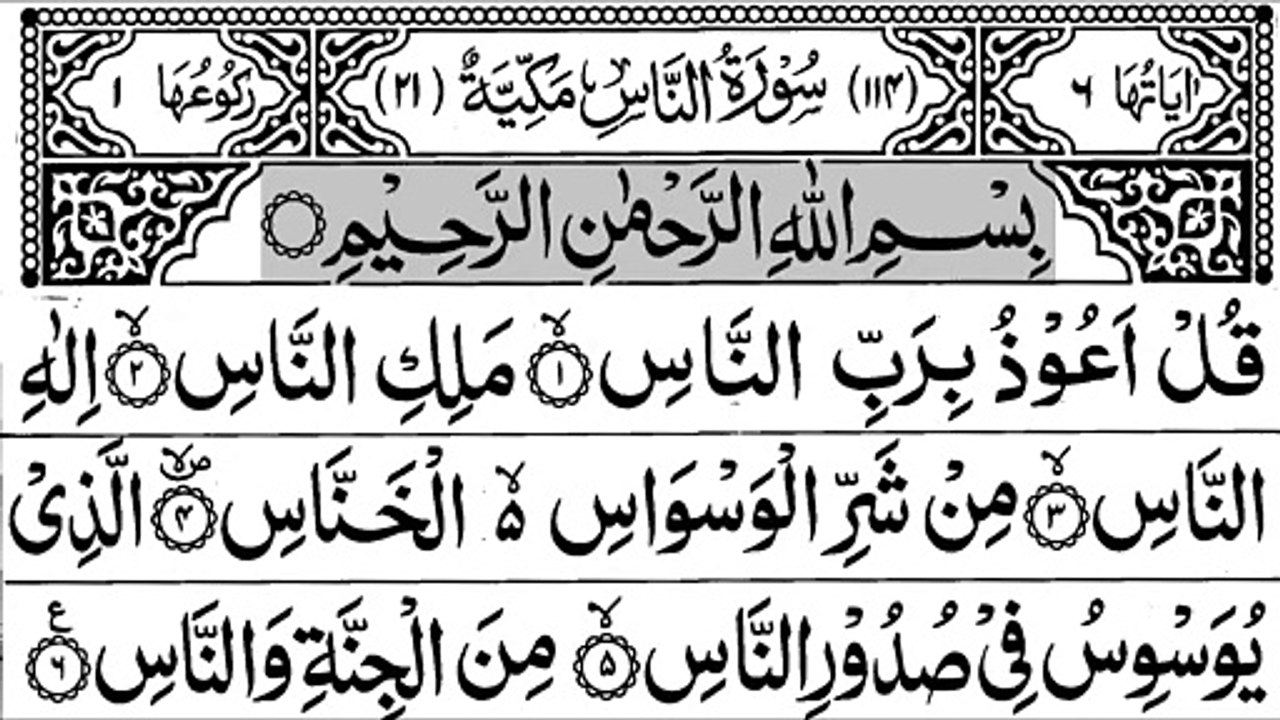 اٰيَاتُهَا ٦ (١١٤) سُوْرَةُ النَّاسِ مَكِّيَّةٌ (٢١) رُكُوْعُهَا ١
بِسْمِ اللّٰهِ الرَّحْمٰنِ الرَّحِيْمِ ۝
قُلْ اَعُوْذُ بِرَبِّ النَّاسِ ۙ ١ مَلِكِ النَّاسِ ۙ ٢ اِلٰهِ
النَّاسِ ۙ ٣ مِنْ شَرِّ الْوَسْوَاسِ ۙ ٥ الْخَنَّاسِ ۪ۙ ٤ الَّذِىْ
يُوَسْوِسُ فِىْ صُدُوْرِ النَّاسِ ۙ ٥ مِنَ الْجِنَّةِ وَالنَّاسِ ع ٦